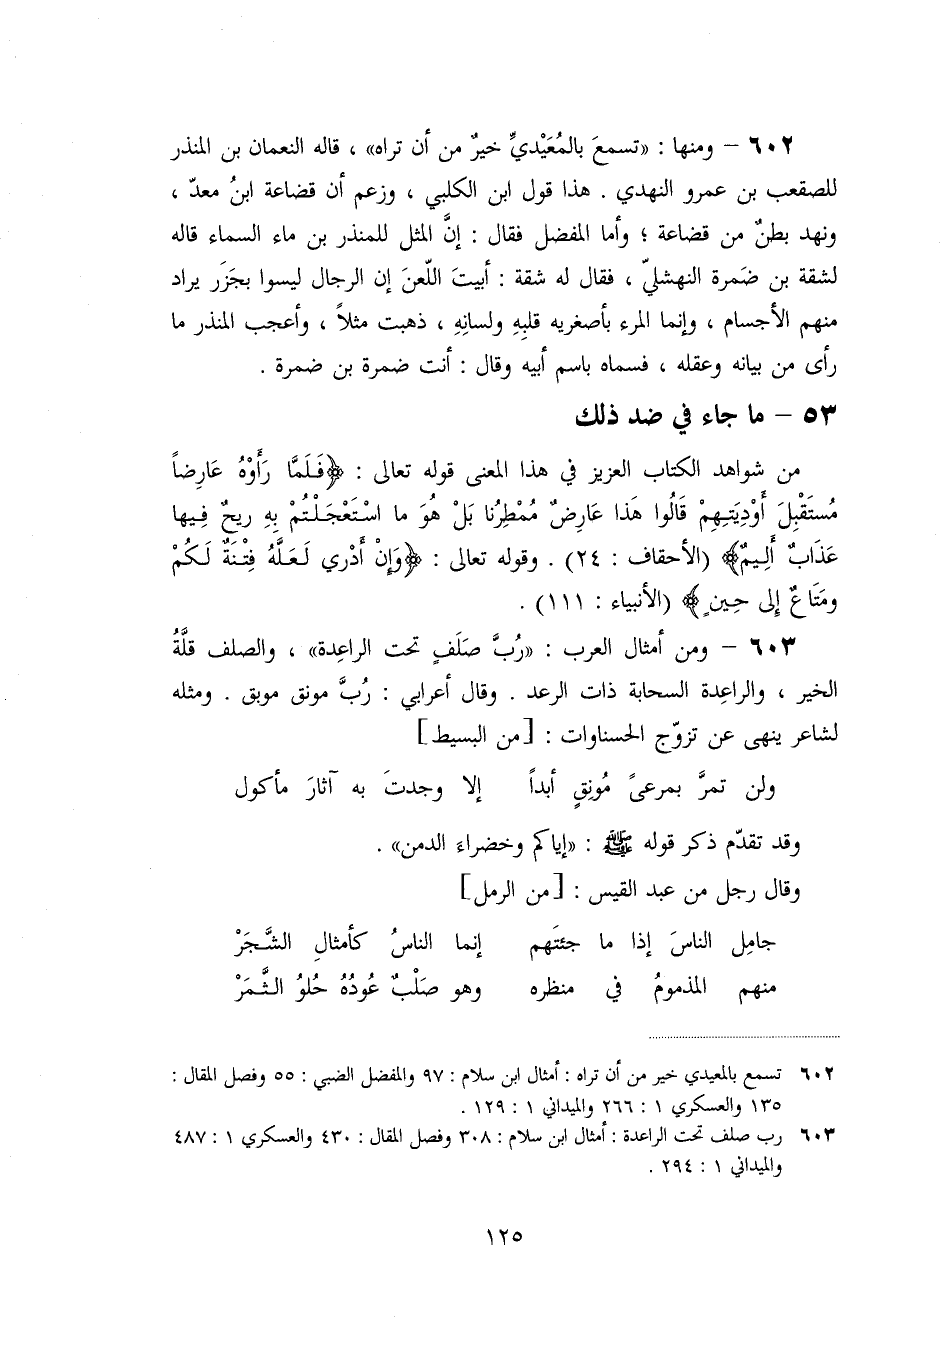 ٦٠٢ – ومنها : «تسمعَ بالمُعَيْديِّ خيرٌ من أن تراه» ، قاله النعمان بن المنذر
للصقعب بن عمرو النهدي . هذا قول ابن الكلبي ، وزعم أن قضاعة ابنُ معدّ ،
ونهد بطنٌ من قضاعة ؛ وأما المفضل فقال : إنَّ المثل للمنذر بن ماء السماء قاله
لشقة بن ضَمرة النهشليّ ، فقال له شقة : أبيتَ اللّعنَ إن الرجال ليسوا بجَزَر يراد
منهم الأجسام ، وإنما المرء بأصغريه قلبِهِ ولسانِهِ ، ذهبت مثلاً ، وأعجب المنذر ما
رأى من بيانه وعقله ، فسماه باسم أبيه وقال : أنت ضمرة بن ضمرة .
٥٣ – ما جاء في ضد ذلك
من شواهد الكتاب العزيز في هذا المعنى قوله تعالى : ﴿فَلَمَّا رَأَوْهُ عَارِضاً
مُستَقْبِلَ أَوْدِيَتِهِمْ قَالُوا هَذا عَارِضٌ مُمْطِرُنا بَلْ هُوَ ما اسْتَعْجَلْتُمْ بِهِ ريحٌ فِيها
عَذَابٌ أَلِيمٌ﴾ (الأحقاف : ٢٤) . وقوله تعالى : ﴿وَإِنْ أَدْري لَعَلَّهُ فِتْنَةٌ لَكُمْ
ومَتَاعٌ إِلى حِينٍ﴾ (الأنبياء : ١١١) .
٦٠٣ – ومن أمثال العرب : «رُبَّ صَلَفٍ تحت الراعِدة» ، والصلف قلَّةُ
الخير ، والراعِدة السحابة ذات الرعد . وقال أعرابي : رُبَّ مونق موبق . ومثله
لشاعر ينهى عن تزوّج الحسناوات : [من البسيط]
ولن تمرَّ بمرعىً مُونِقٍ أبداً إلا وجدتَ به آثارَ مأكول
وقد تقدّم ذكر قوله ﷺ : «إياكم وخضراءَ الدمن» .
وقال رجل من عبد القيس : [من الرمل]
جامِل الناسَ إذا ما جئتَهم إنما الناسُ كأمثالِ الشَّجَرْ
منهم المذمومُ في منظره وهو صَلْبٌ عُودُهُ حُلوُ الثَّمَرْ
٦٠٢ تسمع بالمعيدي خير من أن تراه : أمثال ابن سلام : ٩٧ والمفضل الضبي : ٥٥ وفصل المقال :
١٣٥ والعسكري ١ : ٢٦٦ والميداني ١ : ١٢٩ .
٦٠٣ رب صلف تحت الراعدة : أمثال ابن سلام : ٣٠٨ وفصل المقال : ٤٣٠ والعسكري ١ : ٤٨٧
والميداني ١ : ٢٩٤ .
١٢٥